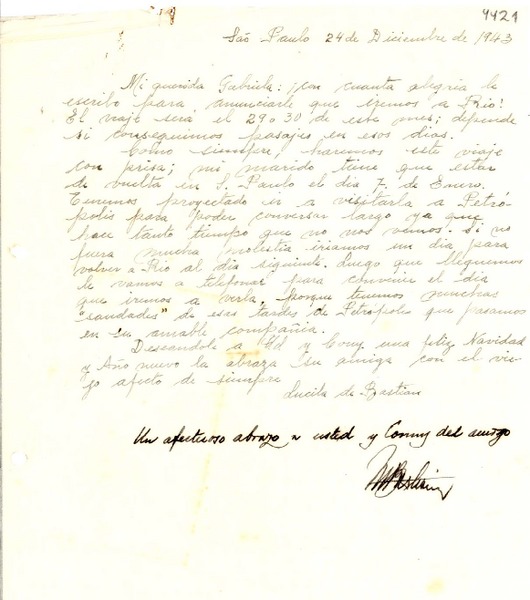 4421
São Paulo 24 de Diciembre de 1943
Mi querida Gabriela: ¡con cuanta alegria le
escribo para anunciarle que iremos a Rio!
El viaje será el 29 o 30 de este mes; depende
si conseguimos pasajes en esos dias.
Como siempre, haremos este viaje
con prisa; mi marido tiene que estar
de vuelta en S. Paulo el dia 7 de Enero.
Tenemos proyectado ir a visitarla a Petró-
polis para poder conversar largo ya que
hace tanto tiempo que no nos vemos. Si no
fuera mucha molestia iriamos un dia para
volver a Rio al dia siguiente. Luego que lleguemos
le vamos a telefonar para convenir el dia
que iremos a verla, porque tenemos muchas
"saudades" de esas tardes de Petropolis que pasamos
en su amable compañia.
Deseandole a Ud y Cony una feliz Navidad
y Año nuevo la abraza su amiga con el vie-
jo afecto de siempre
Lucila de Bastian
Un afectuoso abrazo a usted y Conny del amigo